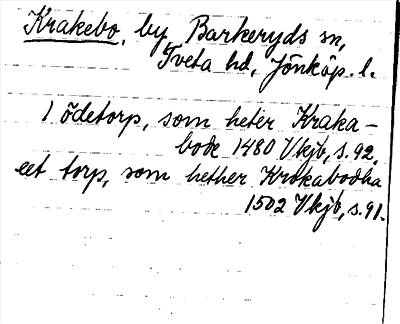 Krakebo, by Barkeryds sn,
Tveta hd, Jönköp. l.
1 ödetorp, som heter Kraka-
bode 1480 Vkjb, s. 92,
eet torp, som hether Krakabodha
1502 Vkjb, s. 91.